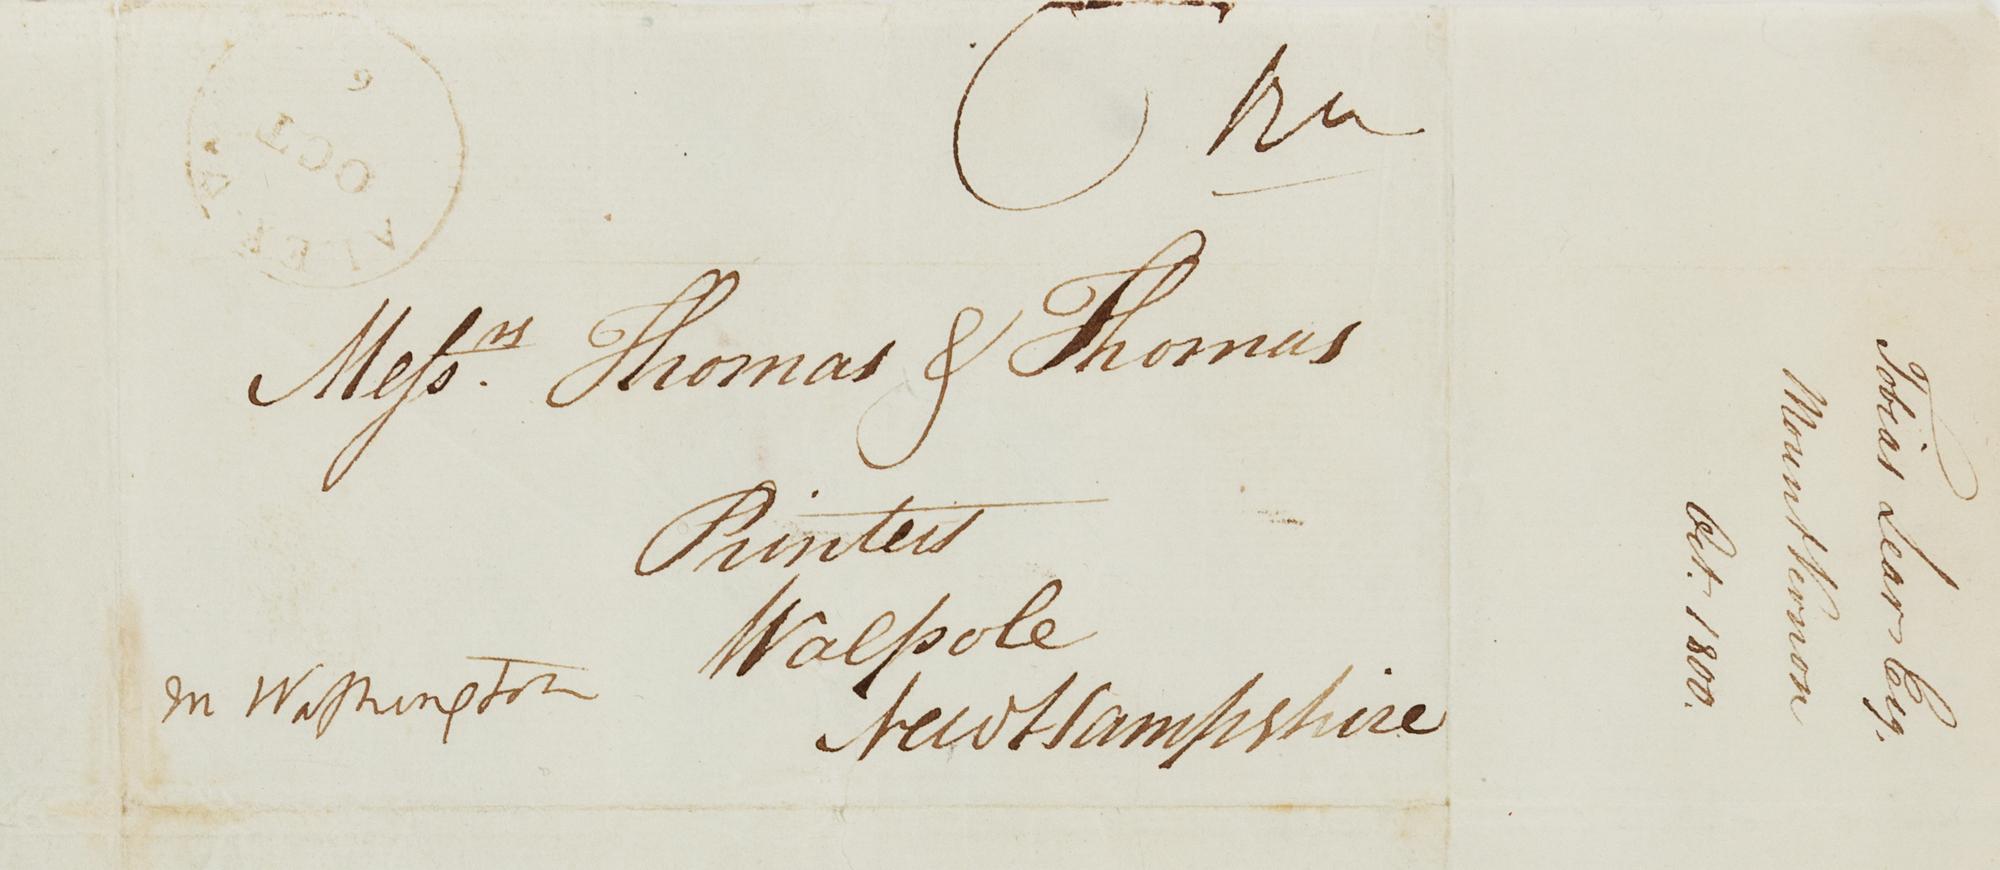 6
OCT
ALEX. VA.
Meſsrs. Thomas & Thomas
Printers
Walpole
New Hampshire
M Waſhington
Tobias Lear Esq.
Mount Vernon
Oct. 1800.